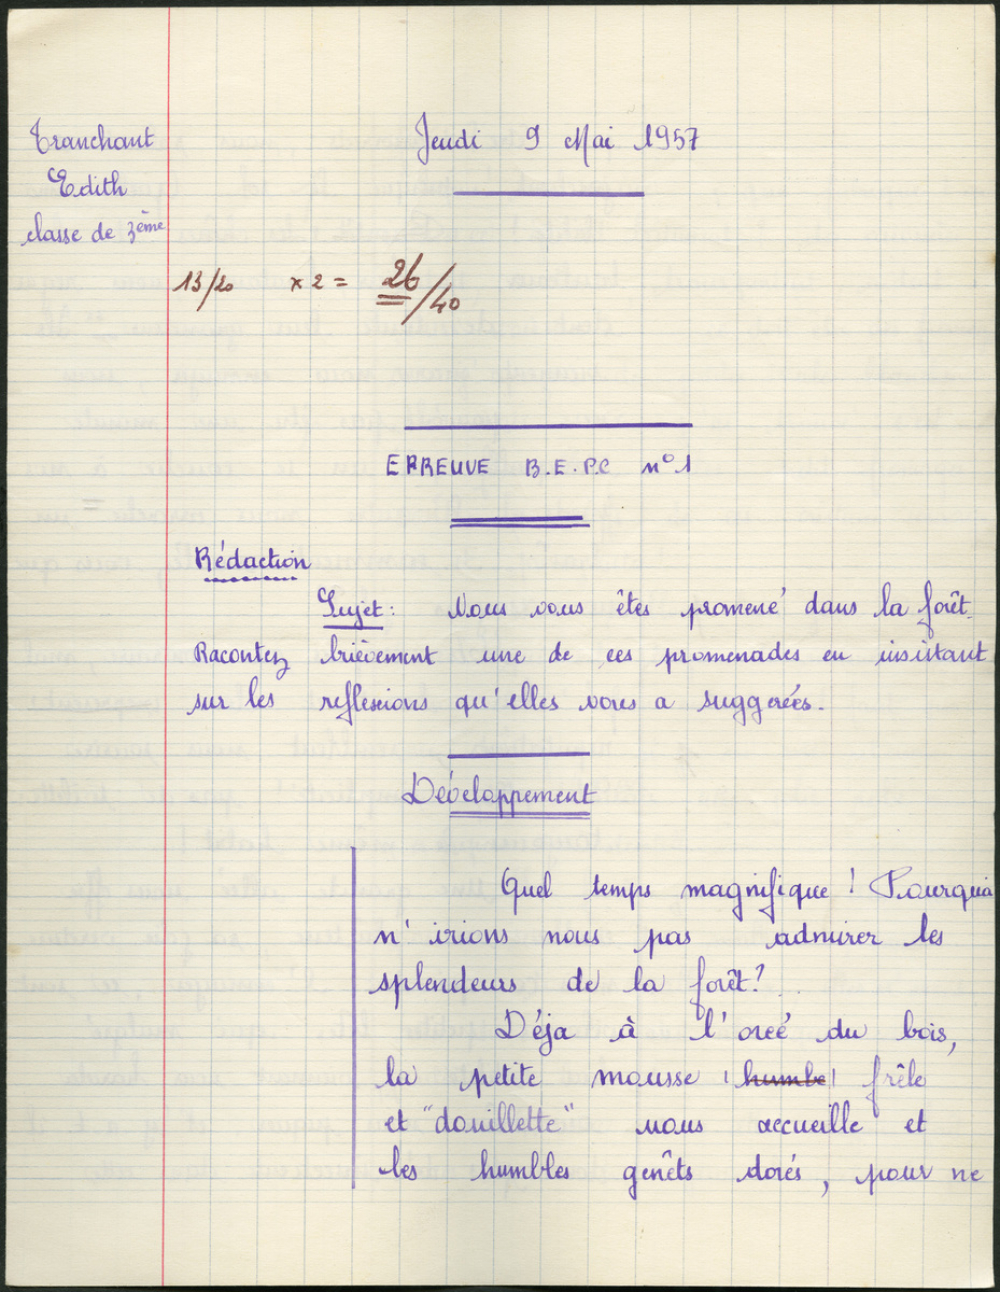 Tranchant
Edith
classe de 3ème
Jeudi 9 Mai 1957
13/20 x 2 = 26/40
EPREUVE B.E.P.C n°1
Rédaction
Sujet : Vous vous êtes promené dans la forêt.
Racontez brièvement une de ces promenades en insistant
sur les réflexions qu'elles vous a suggérées.
Développement
Quel temps magnifique ! Pourquoi
n'irions nous pas admirer les
splendeurs de la forêt ?
Déja à l'orée du bois,
la petite mousse humbe frêle
et "douillette" nous accueille et
les humbles genêts dorés, pour ne